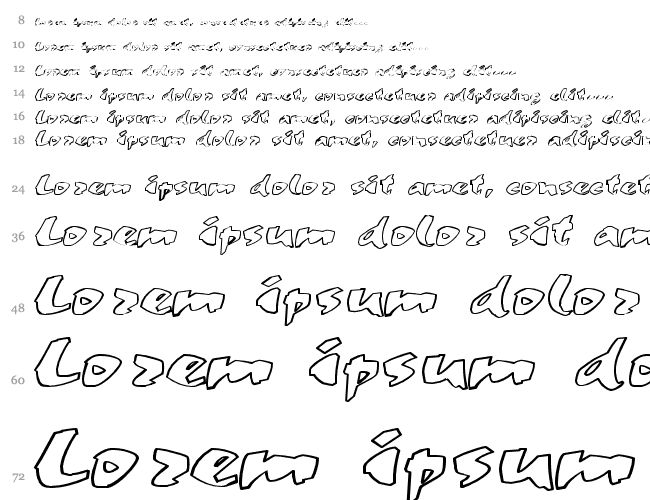 8 Lorem ipsum dolor sit amet, consectetuer adipiscing elit...
10 Lorem ipsum dolor sit amet, consectetuer adipiscing elit...
12 Lorem ipsum dolor sit amet, consectetuer adipiscing elit...
14 Lorem ipsum dolor sit amet, consectetuer adipiscing elit...
16 Lorem ipsum dolor sit amet, consectetuer adipiscing elit..
18 Lorem ipsum dolor sit amet, consectetuer adipiscin
24 Lorem ipsum dolor sit amet, consectet
36 Lorem ipsum dolor sit am
48 Lorem ipsum dolor
60 Lorem ipsum do
72 Lorem ipsum